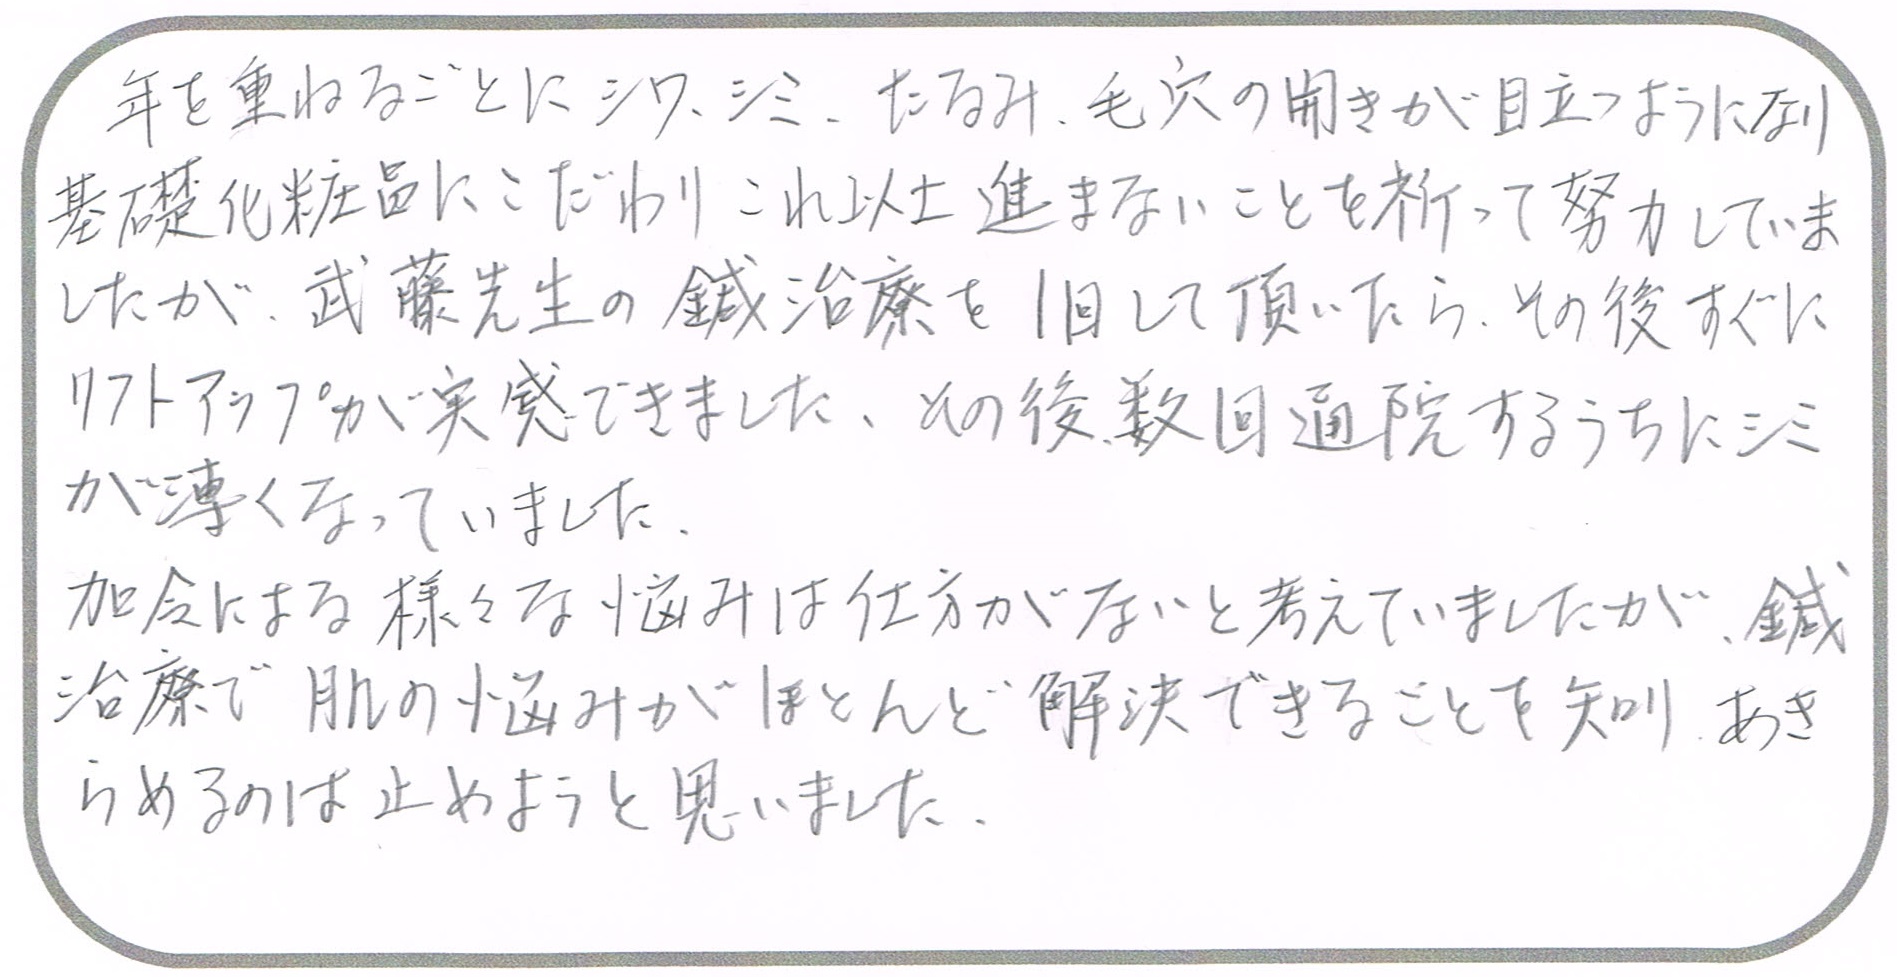 年を重ねるごとにシワ、シミ、たるみ、毛穴の開きが目立つようになり
基礎化粧品にこだわりこれ以上進まないことを祈って努力していま
したが、武藤先生の鍼治療を1回して頂いたら、その後すぐに
リフトアップが実感できました、その後、数回通院するうちにシミ
が薄くなっていました、
加令による様々な悩みは仕方がないと考えていましたが、鍼
治療で肌の悩みがほとんど解決できることを知り、あき
らめるのは止めようと思いました、